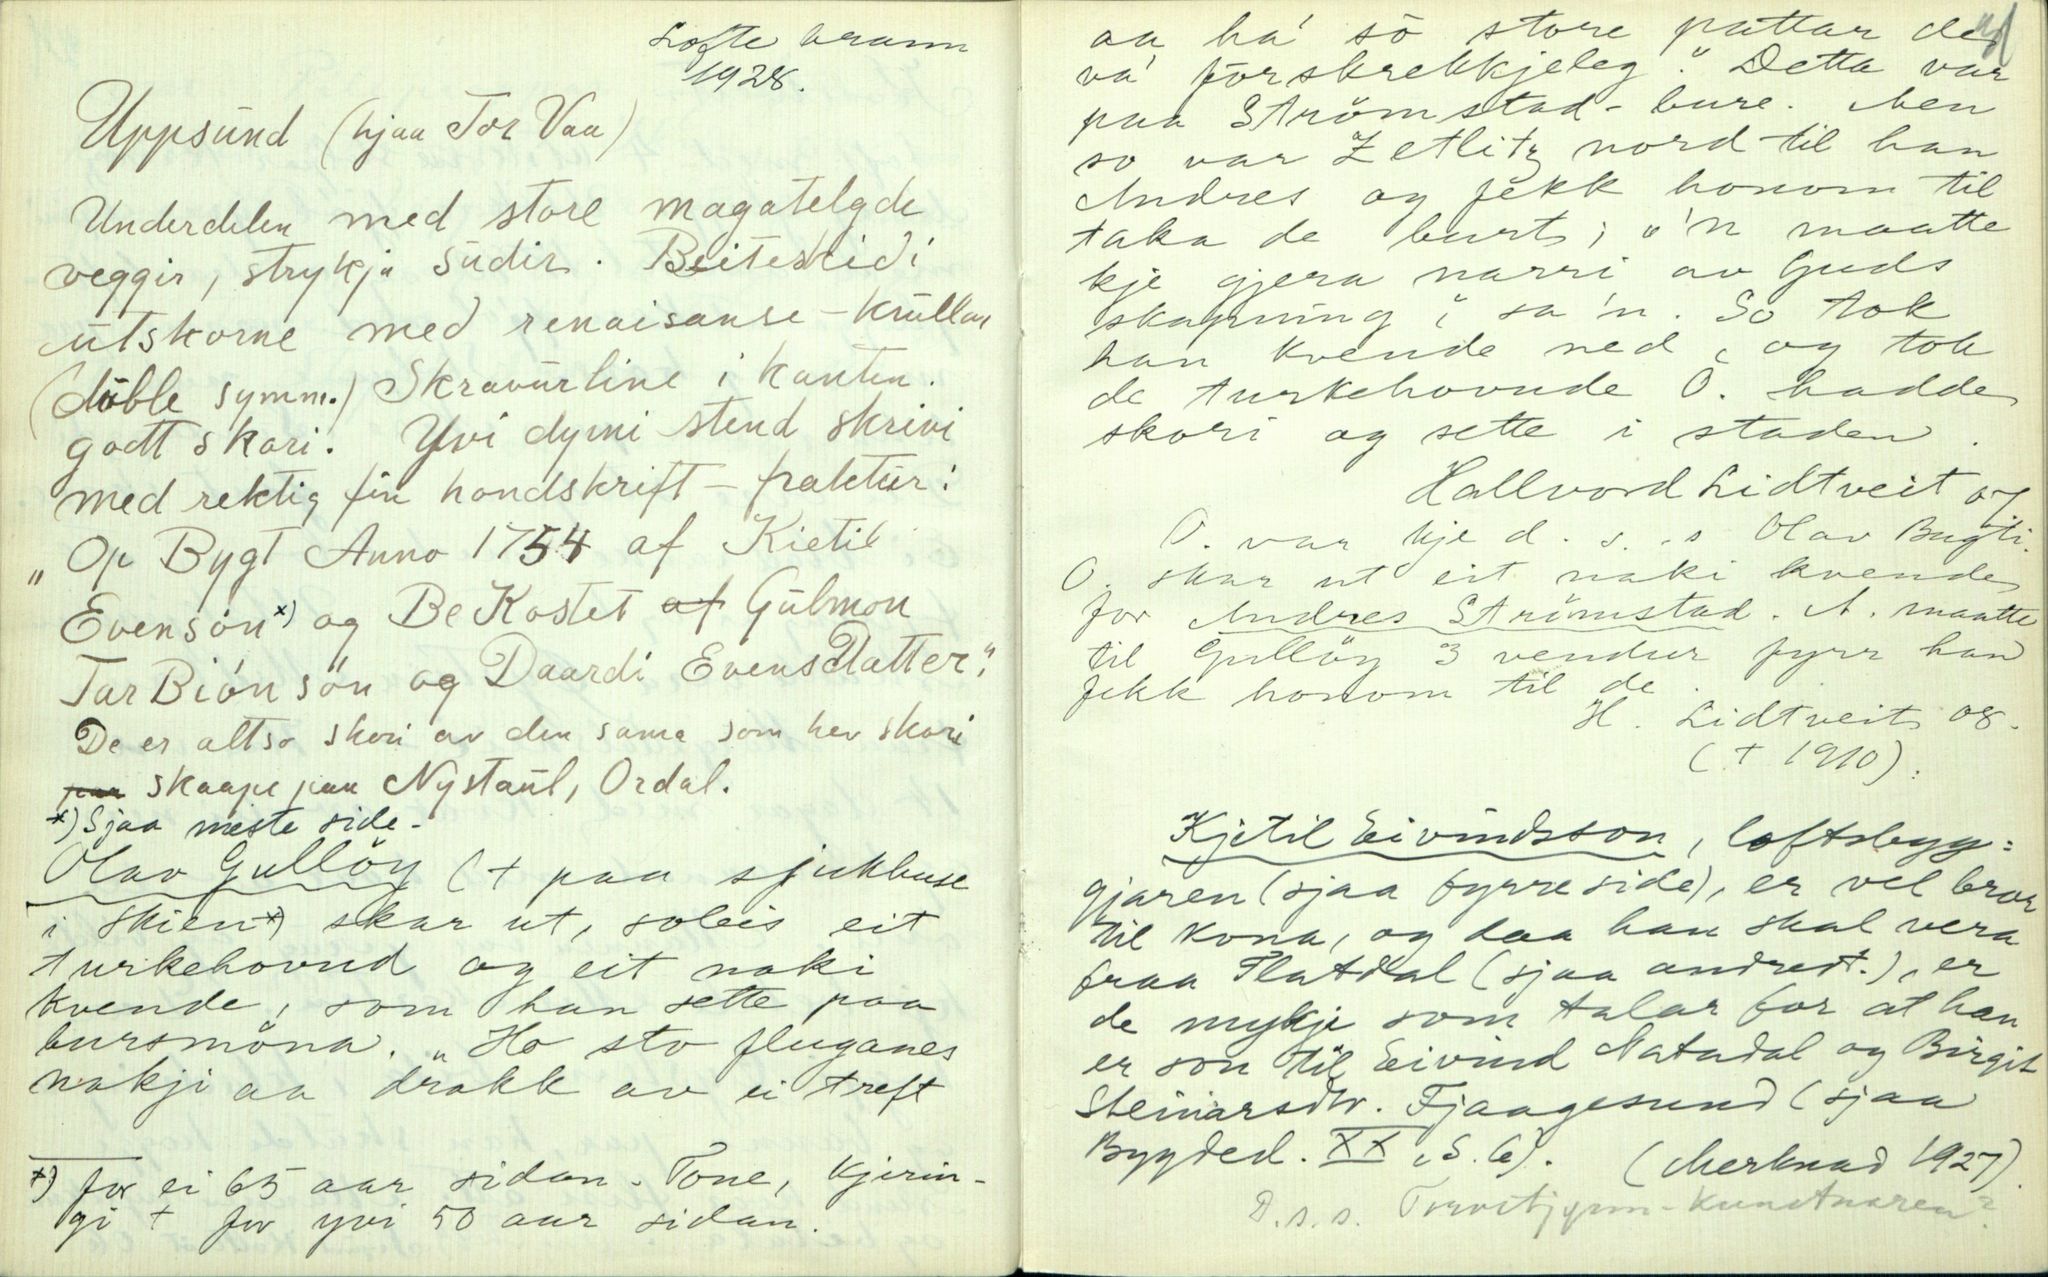 Lofte brann
1928.
Uppsund (hjaa Tor Vaa)
Underdelen med store magatelgde
veggir, strykje sudir. Beiteskidi
utskorne med renaisanse-krullar
(duble symm.) Skravurline i kanten.
godt skori. Yvi dyrni stend skrivi
med rektig fin hondskrift - fraktur:
"Op Bygt Anno 1754 af Kietil
Evensøn x) og BeKostet af Gulmon
TarBiónsön og Daardi EvensDatter".
De er altso skori av den sama som hev skori
paa skaape paa Nystaul, Ordal.
x) Sjaa neste side.
Olav Gullöy (+ paa sjukhuse
i Skien x) skar ut, soleis eit
turkehovud og eit naki
kvende, som han sette paa
bursmöna. "Ho sto fluganes
nakji aa drakk av ei treft
x) for ei 65 aar sidan. Tone, kjerin-
gi + for yvi 50 aar sidan.
aa ha' sö store pattar de
va' förskrekkjeleg." Detta var
paa Strömstad-bure. Men
so var Zetlitz nord til han
Andres og fekk honom til
taka de burt; "'n maatte
kje gjera narri av Guds
skapning", sa 'n. So tok
han kvende ned, og tok
de turkehovude O. hadde
skori og sette i staden.
Hallvord Lidtveit og
O. var kje d. s. s Olav Bugti.
O. skar ut eit naki kvende
for Andres Strömstad. A. maatte
til Gullöy 3 vendur fyrr han
fekk honom til de.
H. Lidtveit og.
(+ 1910).
Kjetil Eivindsson, loftsbyg=
gjaren (sjaa fyrre side), er vel bror
til kona, og daa han skal vera
fraa Flatdal (sjaa andredt.), er
de mykje som talar for at han
er son til Eivind Natadal og Birgit
Steinarsdtr. Fjaagesund (sjaa
Bygded. XX, S. 6). (Merknad 1927).
D.s.s. Tvveitjynn-kunstnaren?